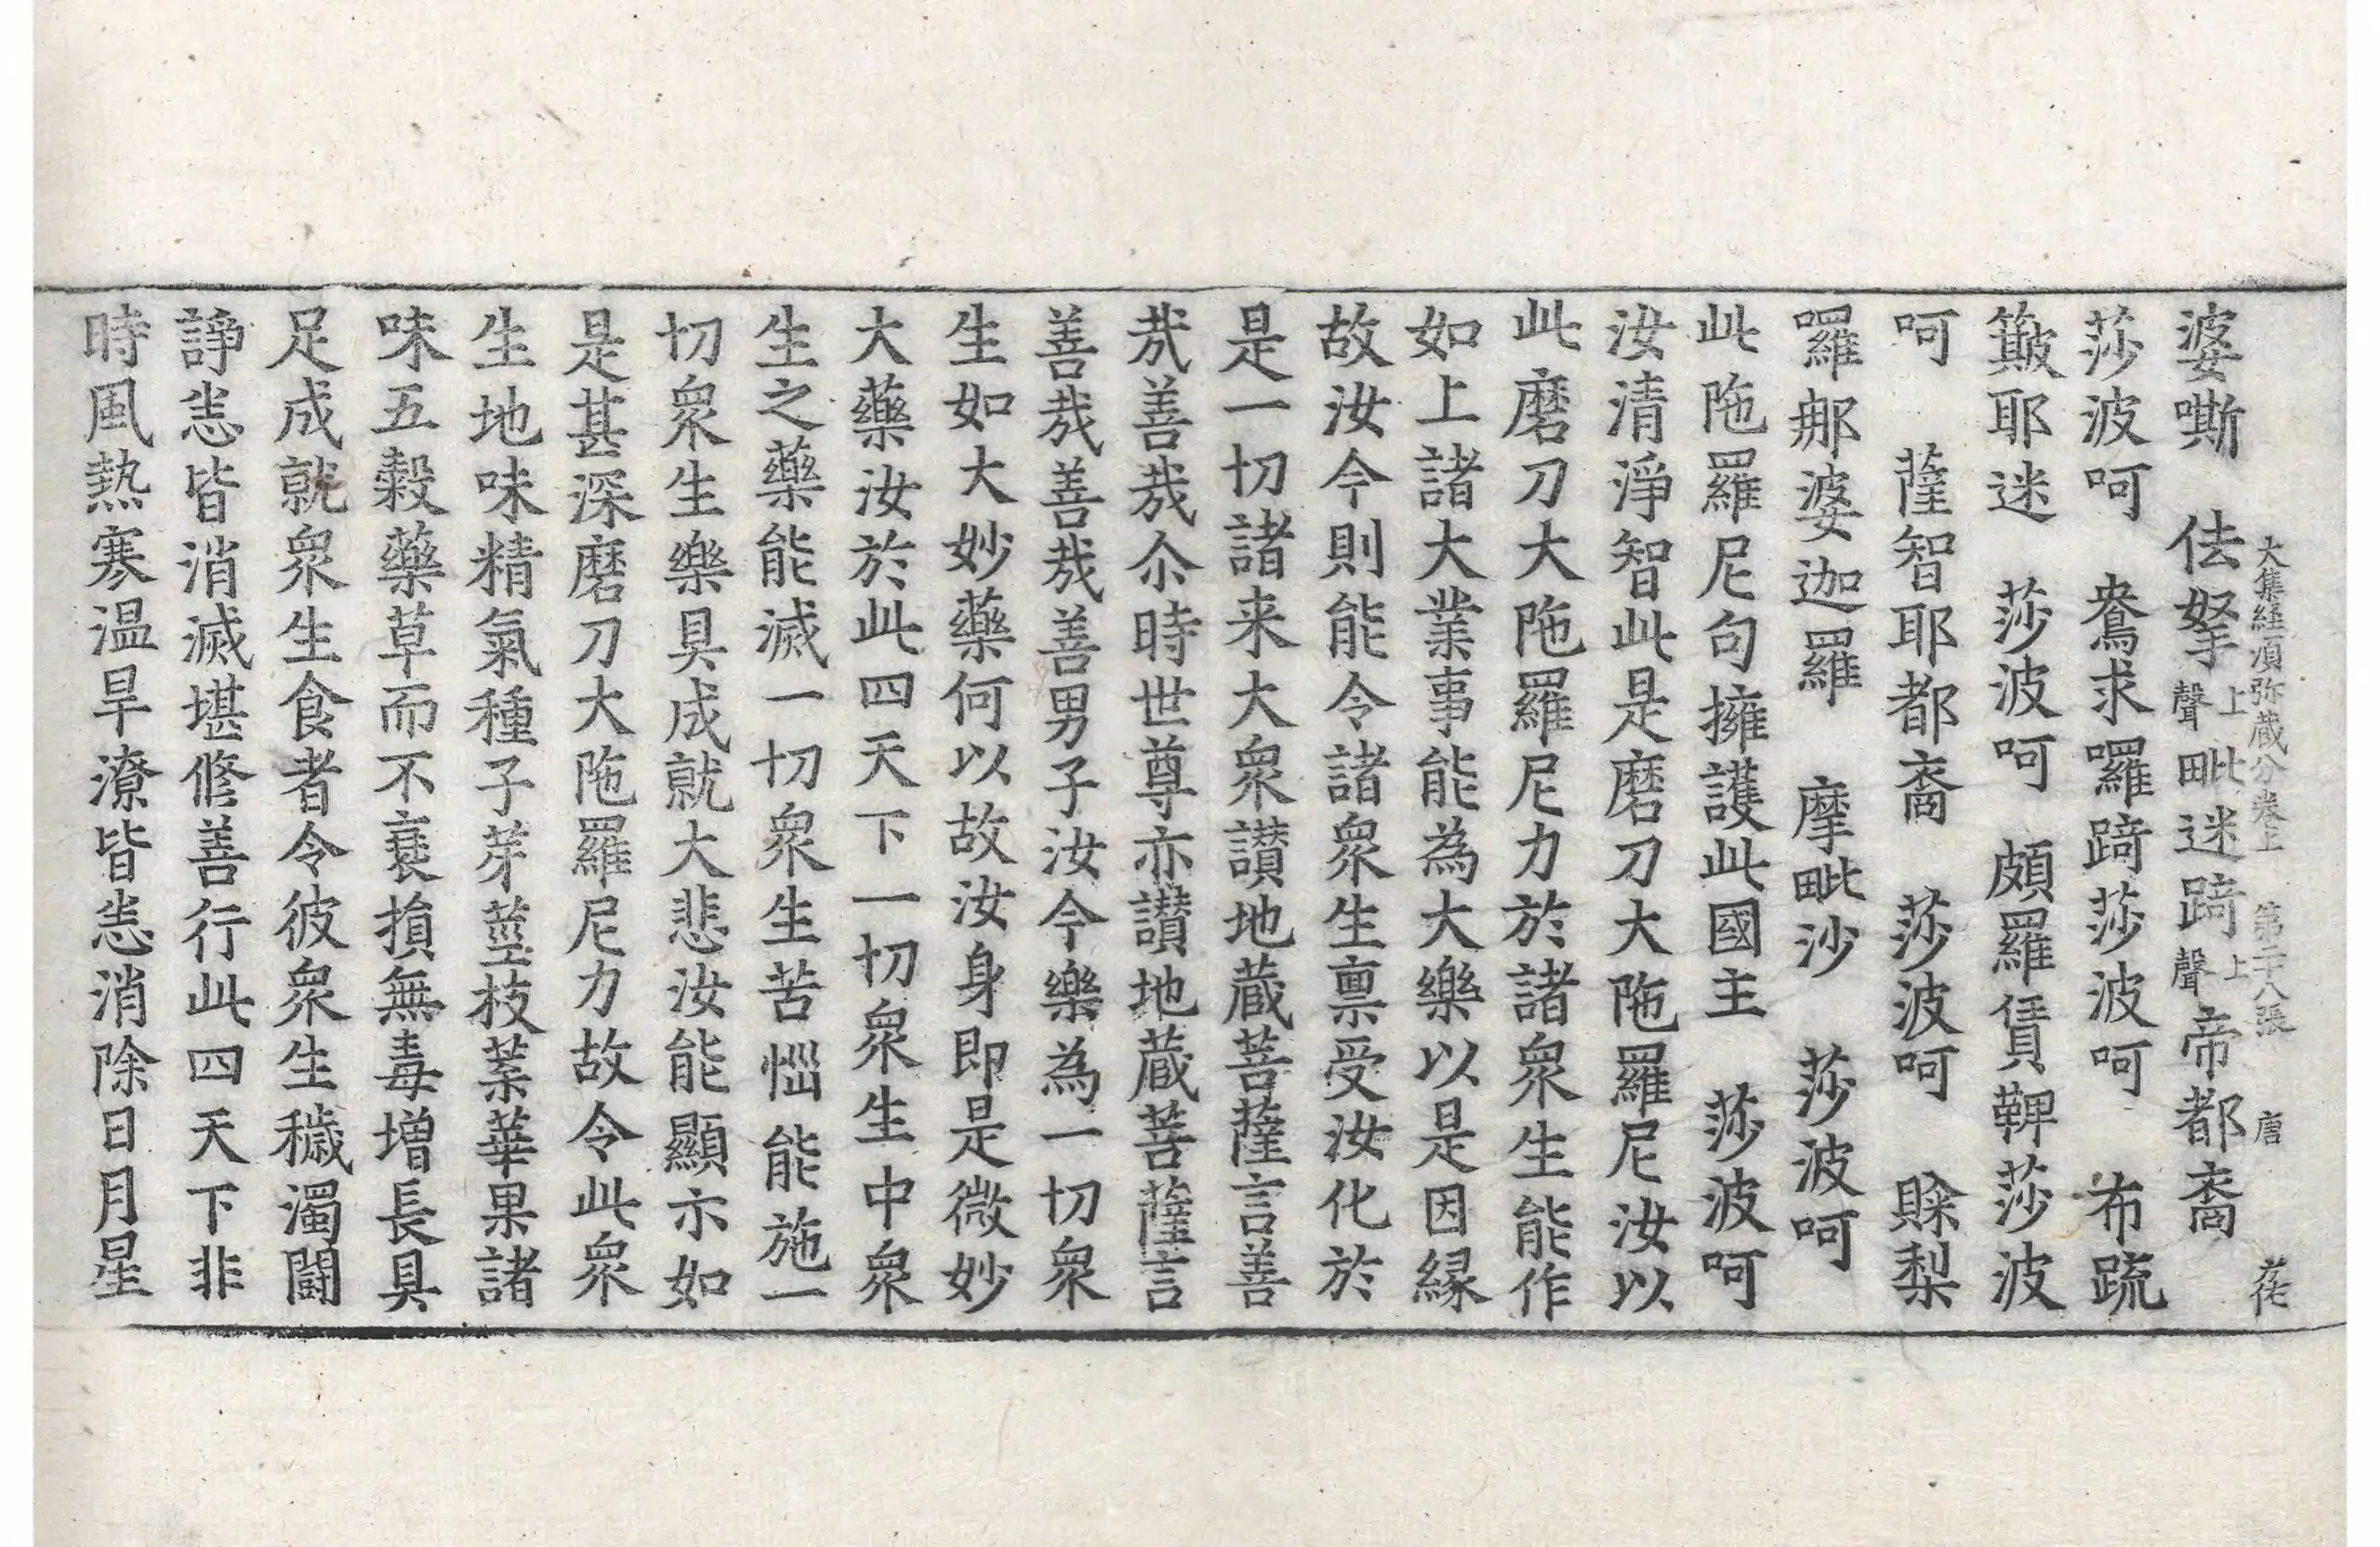 大集経須弥蔵分卷上 第二十八張 唐 花
婆嘶 佉拏上聲毗迷䠋上聲帝都裔
莎波呵 鴦求囉䠋莎波呵 布䟽
簸耶迷 莎波呵 頗羅賃鞞莎波
呵 薩智耶都裔 莎波呵 賖梨
囉郍婆迦羅 摩毗沙 莎波呵
此陁羅尼句擁護此國主 莎波呵
汝清淨智此是磨刀大陁羅尼汝以
此磨刀大陁羅尼力於諸衆生能作
如上諸大業事能為大樂以是因縁
故汝今則能令諸衆生禀受汝化於
是一切諸来大衆讃地蔵菩薩言善
㢤善㢤尒時世尊亦讃地蔵菩薩言
善㢤善㢤善男子汝今樂為一切衆
生如大妙藥何以故汝身即是微妙
大藥汝於此四天下一切衆生中衆
生之藥能滅一切衆生苦惱能施一
切衆生樂具成就大悲汝能顯示如
是甚深磨刀大陁羅尼力故令此衆
生地味精氣種子芽莖枝葉華果諸
味五穀藥草而不衰損無毒増長具
足成就衆生食者令彼衆生穢濁鬪
諍悉皆消滅堪修善行此四天下非
時風熱寒温旱潦皆悉消除日月星